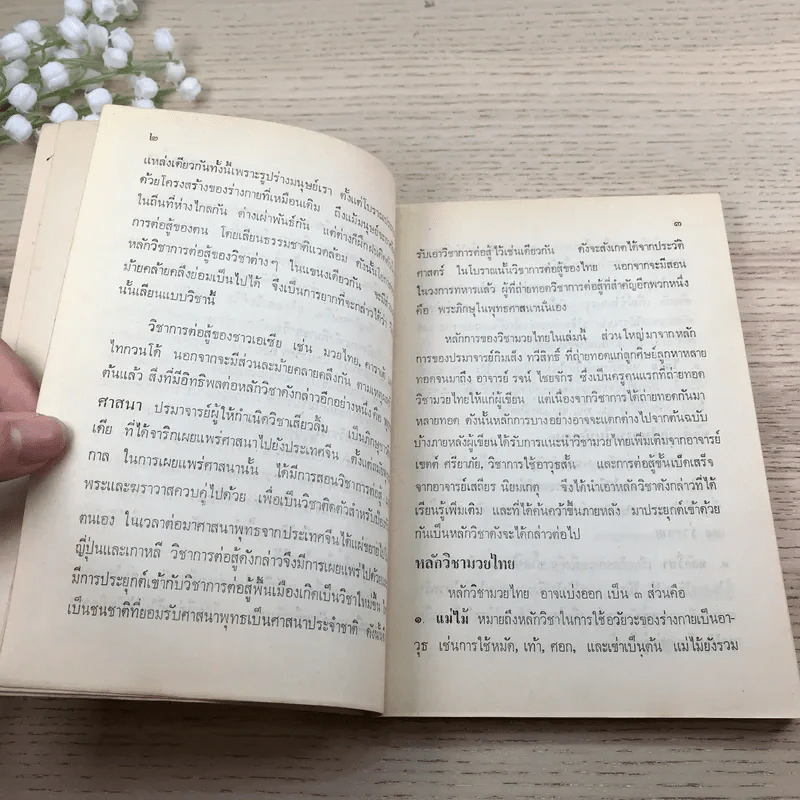 ๒
แหล่งเดียวกันทั้งนี้เพราะรูปร่างมนุษย์เรา ตั้งแต่โบราณ
ด้วยโครงสร้างของร่างกายที่เหมือนเดิม ถึงแม้มนุษย์
ในถิ่นที่ห่างไกลกัน ต่างเผ่าพันธุ์กัน แต่ต่างก็ฝึกฝน
การต่อสู้ของตน โดยเลียนธรรมชาติแวดล้อม ดังนั้น
หลักวิชาการต่อสู้ของวิชาต่างๆ ในแขนงเดียวกัน
ม้ายคล้ายคลึงย่อมเป็นไปได้ จึงเป็นการยากที่จะกล่าวได้
นั้นเลียนแบบวิชานี้
วิชาการต่อสู้ของชาวเอเซีย เช่น มวยไทย, คาราเต้
ไทกวนโด้ นอกจากจะมีส่วนละม้ายคล้ายคลึงกัน ตามเหตุผล
ต้นแล้ว สิ่งที่มีอิทธิพลต่อหลักวิชาดังกล่าวอีกอย่างหนึ่ง คือ
ศาสนา ปรมาจารย์ผู้ให้กำเนิดวิชาเสียวลิ้ม เป็นภิกษุชาว
เดีย ที่ได้จาริกเผยแพร่ศาสนาไปยังประเทศจีน ตั้งแต่
กาล ในการเผยแพร่ศาสนานั้น ได้มีการสอนวิชาการต่อสู้
พระและฆราวาสควบคู่ไปด้วย เพื่อเป็นวิชาติดตัวสำหรับ
ตนเอง ในเวลาต่อมาศาสนาพุทธจากประเทศจีนได้แผ่ขยาย
ญี่ปุ่นและเกาหลี วิชาการต่อสู้ดังกล่าวจึงมีการเผยแพร่ไปด้วย
มีการประยุกต์เข้ากับวิชาการต่อสู้พื้นเมืองเกิดเป็นวิชาใหม่ขึ้น
เป็นชนชาติที่ยอมรับศาสนาพุทธเป็นศาสนาประจำชาติ ดังนั้น
๓
รับเอาวิชาการต่อสู้ไว้เช่นเดียวกัน ดังจะสังเกตได้จากประวัติ
ศาสตร์ ในโบราณนั้นวิชาการต่อสู้ของไทย นอกจากจะมีสอน
ในวงการทหารแล้ว ผู้ที่ถ่ายทอดวิชาการต่อสู้ที่สำคัญอีกพวกหนึ่ง
คือ พระภิกษุในพุทธศาสนานั่นเอง
หลักการของวิชามวยไทยในเล่มนี้ ส่วนใหญ่มาจากหลัก
การของปรมาจารย์กิมเส็ง ทวีสิทธิ์ ที่ถ่ายทอดแก่ลูกศิษย์ลูกหาหลาย
ทอดจนมาถึง อาจารย์ รจน์ ไชยจักร ซึ่งเป็นครูคนแรกที่ถ่ายทอด
วิชามวยไทยให้แก่ผู้เขียน แต่เนื่องจากวิชาการได้ถ่ายทอดกันมา
หลายทอด ดังนั้นหลักการบางอย่างอาจจะแตกต่างไปจากต้นฉบับ
บ้างภายหลังผู้เขียนได้รับการแนะนำวิชามวยไทยเพิ่มเติมจากอาจารย์
เขตต์ ศรียาภัย, วิชาการใช้อาวุธสั้น และการต่อสู้ชั้นเบ็ดเสร็จ
จากอาจารย์เสถียร นิยมเกตุ จึงได้นำเอาหลักวิชาดังกล่าวที่ได้
เรียนรู้เพิ่มเติม และที่ได้ค้นคว้าขึ้นภายหลัง มาประยุกต์เข้าด้วย
กันเป็นหลักวิชาดังจะได้กล่าวต่อไป
หลักวิชามวยไทย
หลักวิชามวยไทย อาจแบ่งออก เป็น ๓ ส่วนคือ
๑. แม่ไม้ หมายถึงหลักวิชาในการใช้อวัยวะของร่างกายเป็นอา-
วุธ เช่นการใช้หมัด, เท้า, ศอก, และเข่าเป็นต้น แม่ไม้ยังรวม